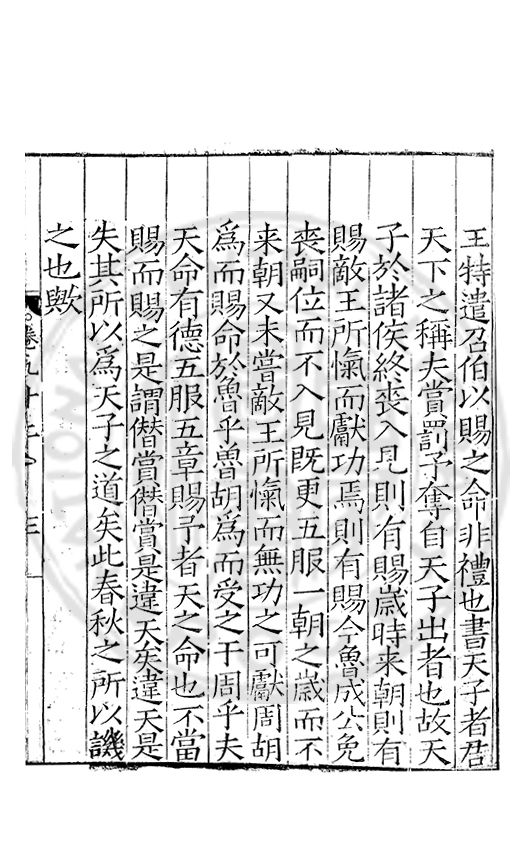 王特遣召伯以賜之命非禮也書天子者君
天下之稱夫賞罰予奪自天子出者也故天
子於諸侯終喪入見則有賜歲時来朝則有
賜敵王所愾而獻功焉則有賜今魯成公免
喪嗣位而不入見既更五服一朝之歲而不
来朝又未嘗敵王所愾而無功之可獻周胡
爲而賜命於魯乎魯胡爲而受之于周乎夫
天命有德五服五章賜予者天之命也不當
賜而賜之是謂僣賞僣賞是違天矣違天是
失其所以爲天子之道矣此春秋之所以譏
之也歟
卷九十
三